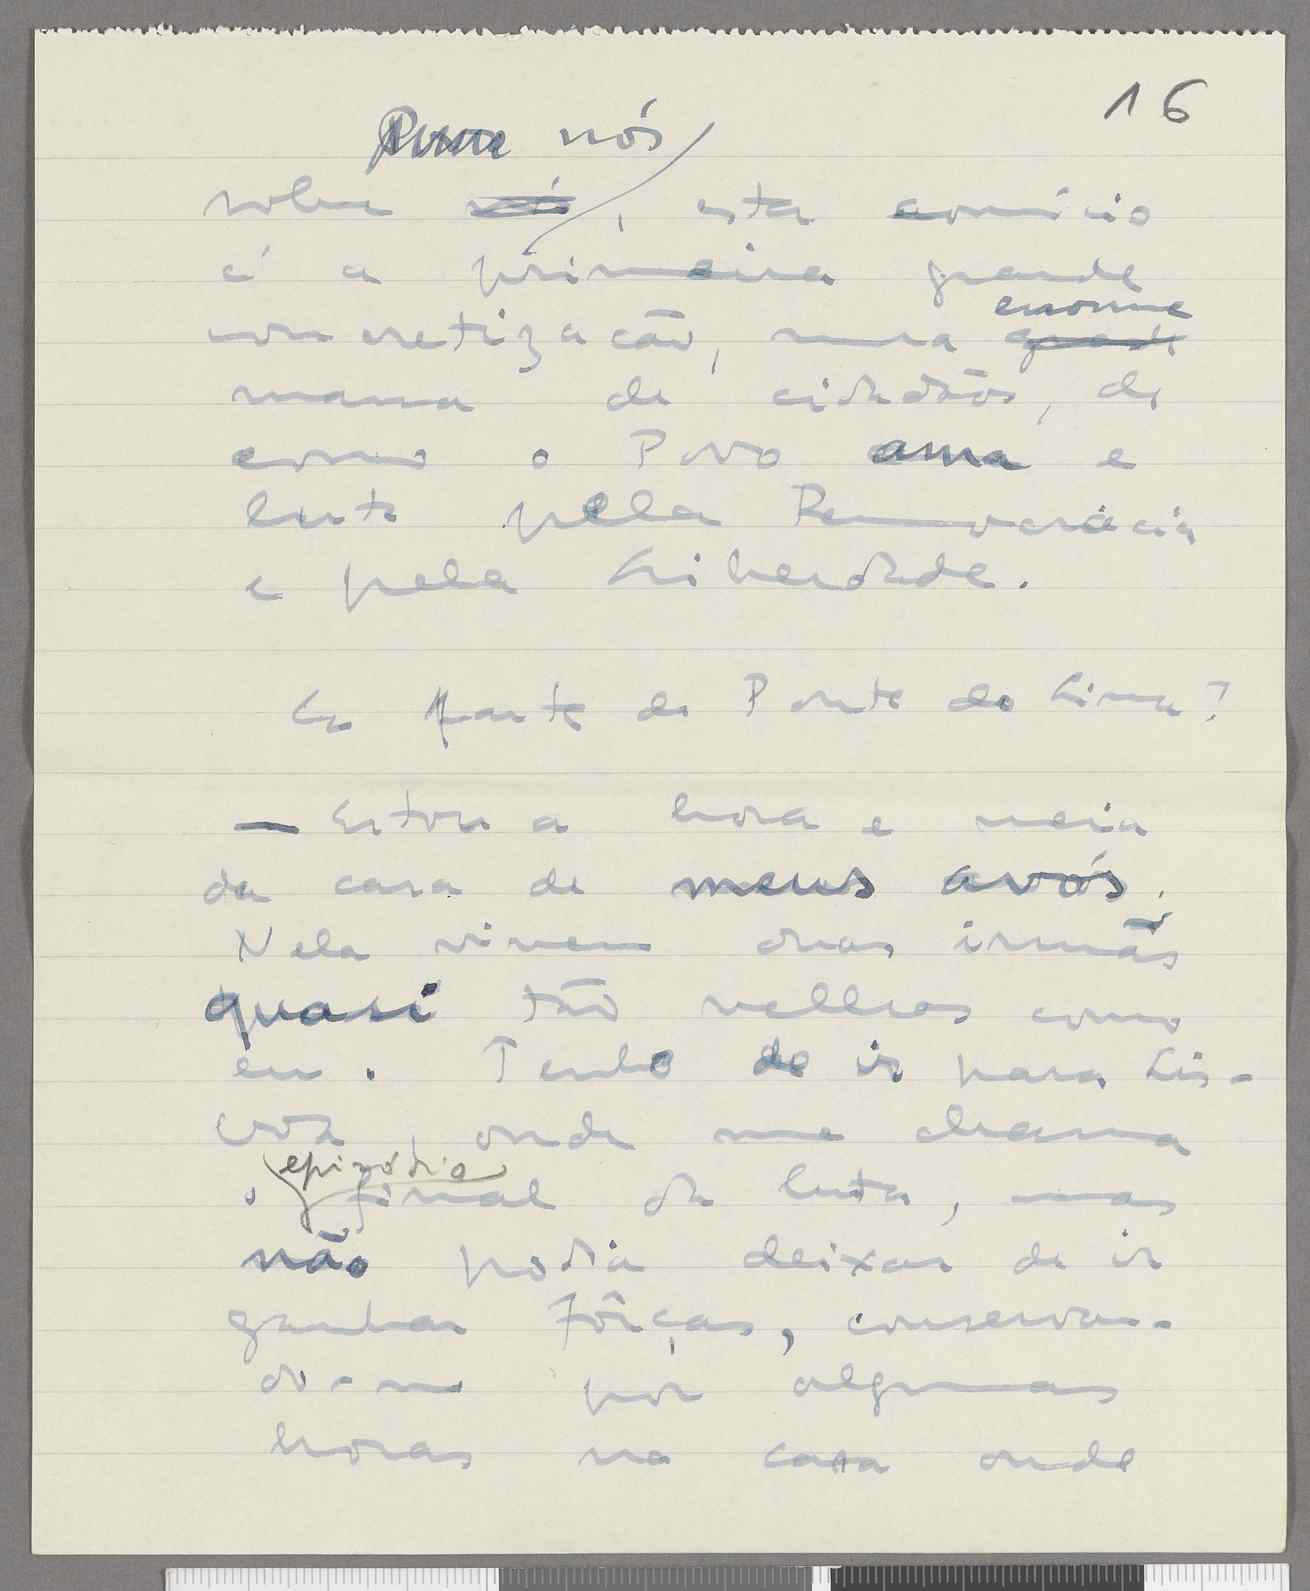 16
nós
sobre nós, este comício
é a primeira grande
concretização, numa grande enorme
massa de cidadãos, de
como o Povo ama e
luta pela Democrácia
e pela Liberdade.
parte de Ponte do Lima?
— Estou a hora e meia
da casa de meus avós.
Nela vivem duas irmãs
quasi tão velhas como
eu. Tenho de ir para Lis-
boa, onde me chama
o episódio final da luta, mas
não podia deixar de ir
ganhar fôrças, conservan-
do-me por algumas
horas na casa onde